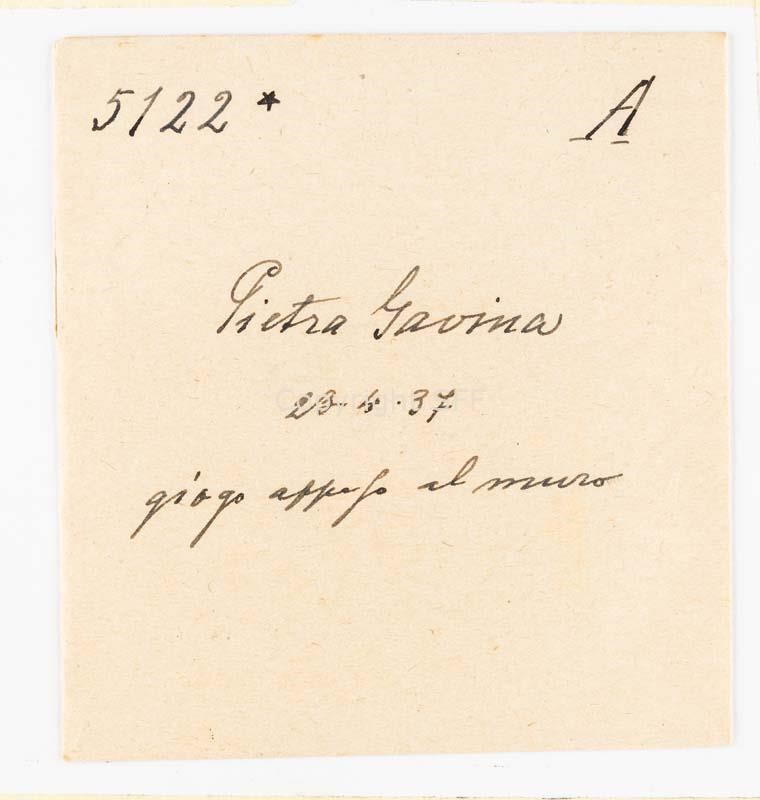 5122* A
Pietra Gavina
23.4.37
giogo appeso al muro